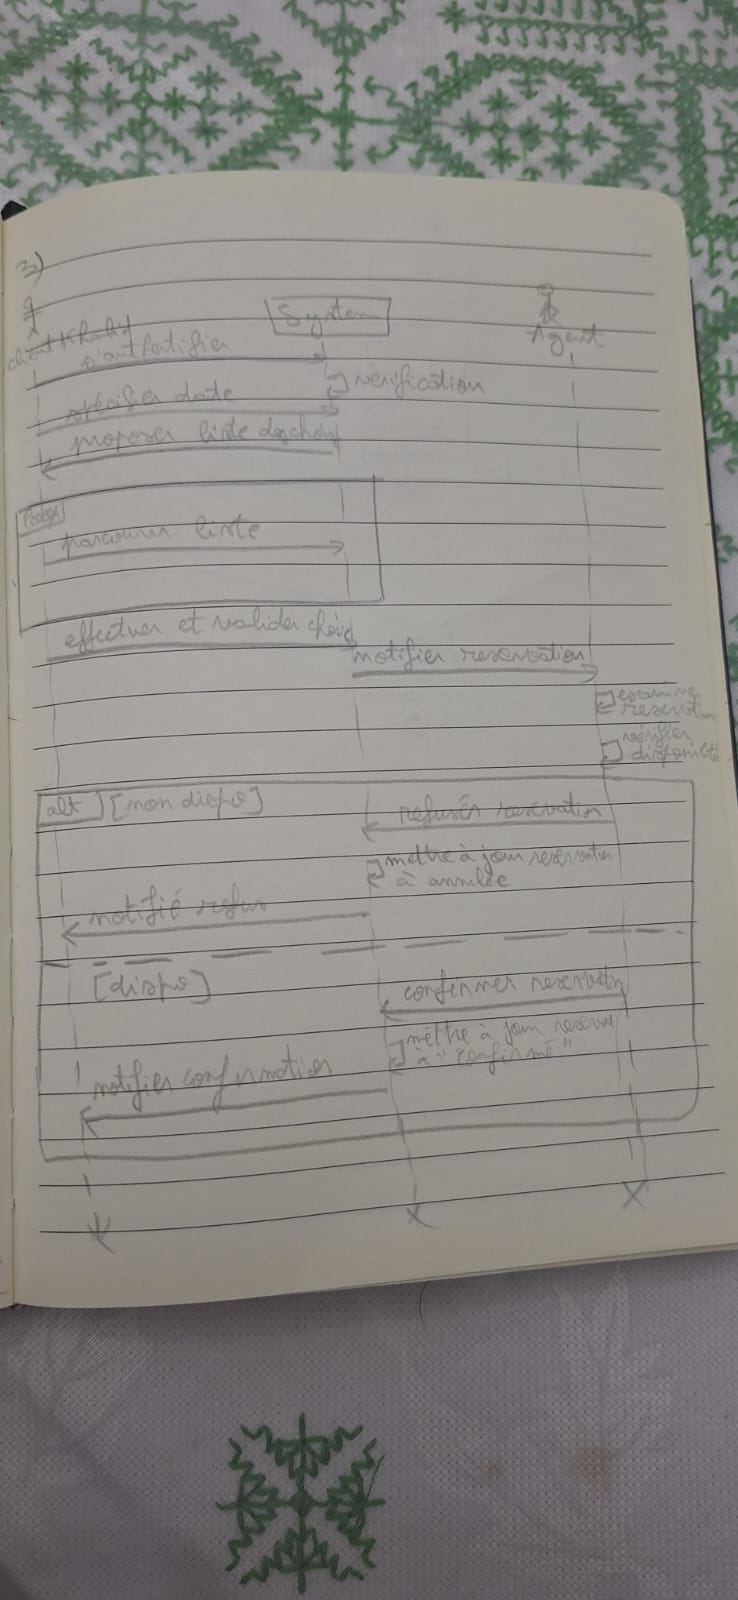 3)
System
Agent
client
s'authentifier
verification
spécifier date
proposer liste des choix
parcourir liste
effectuer et valider choix
notifier reservation
examiner
reservation
vérifier
alt [non dispo]
refuser reservation
mettre à jour reservation
à annulée
notifié refus
[dispo]
confirmer reservation
mettre à jour reserva
à "confirmé"
notifier confirmation